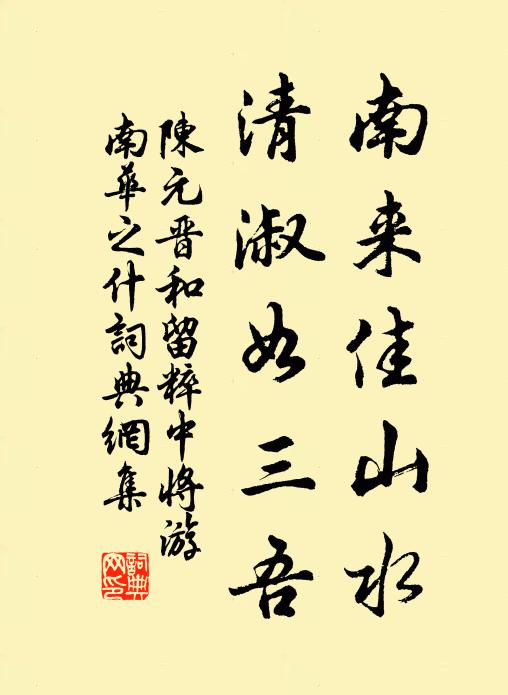 南来佳山水
清淑如三吾
陳元晋和留粹中將游
南華之什詞典網集
詞典网印